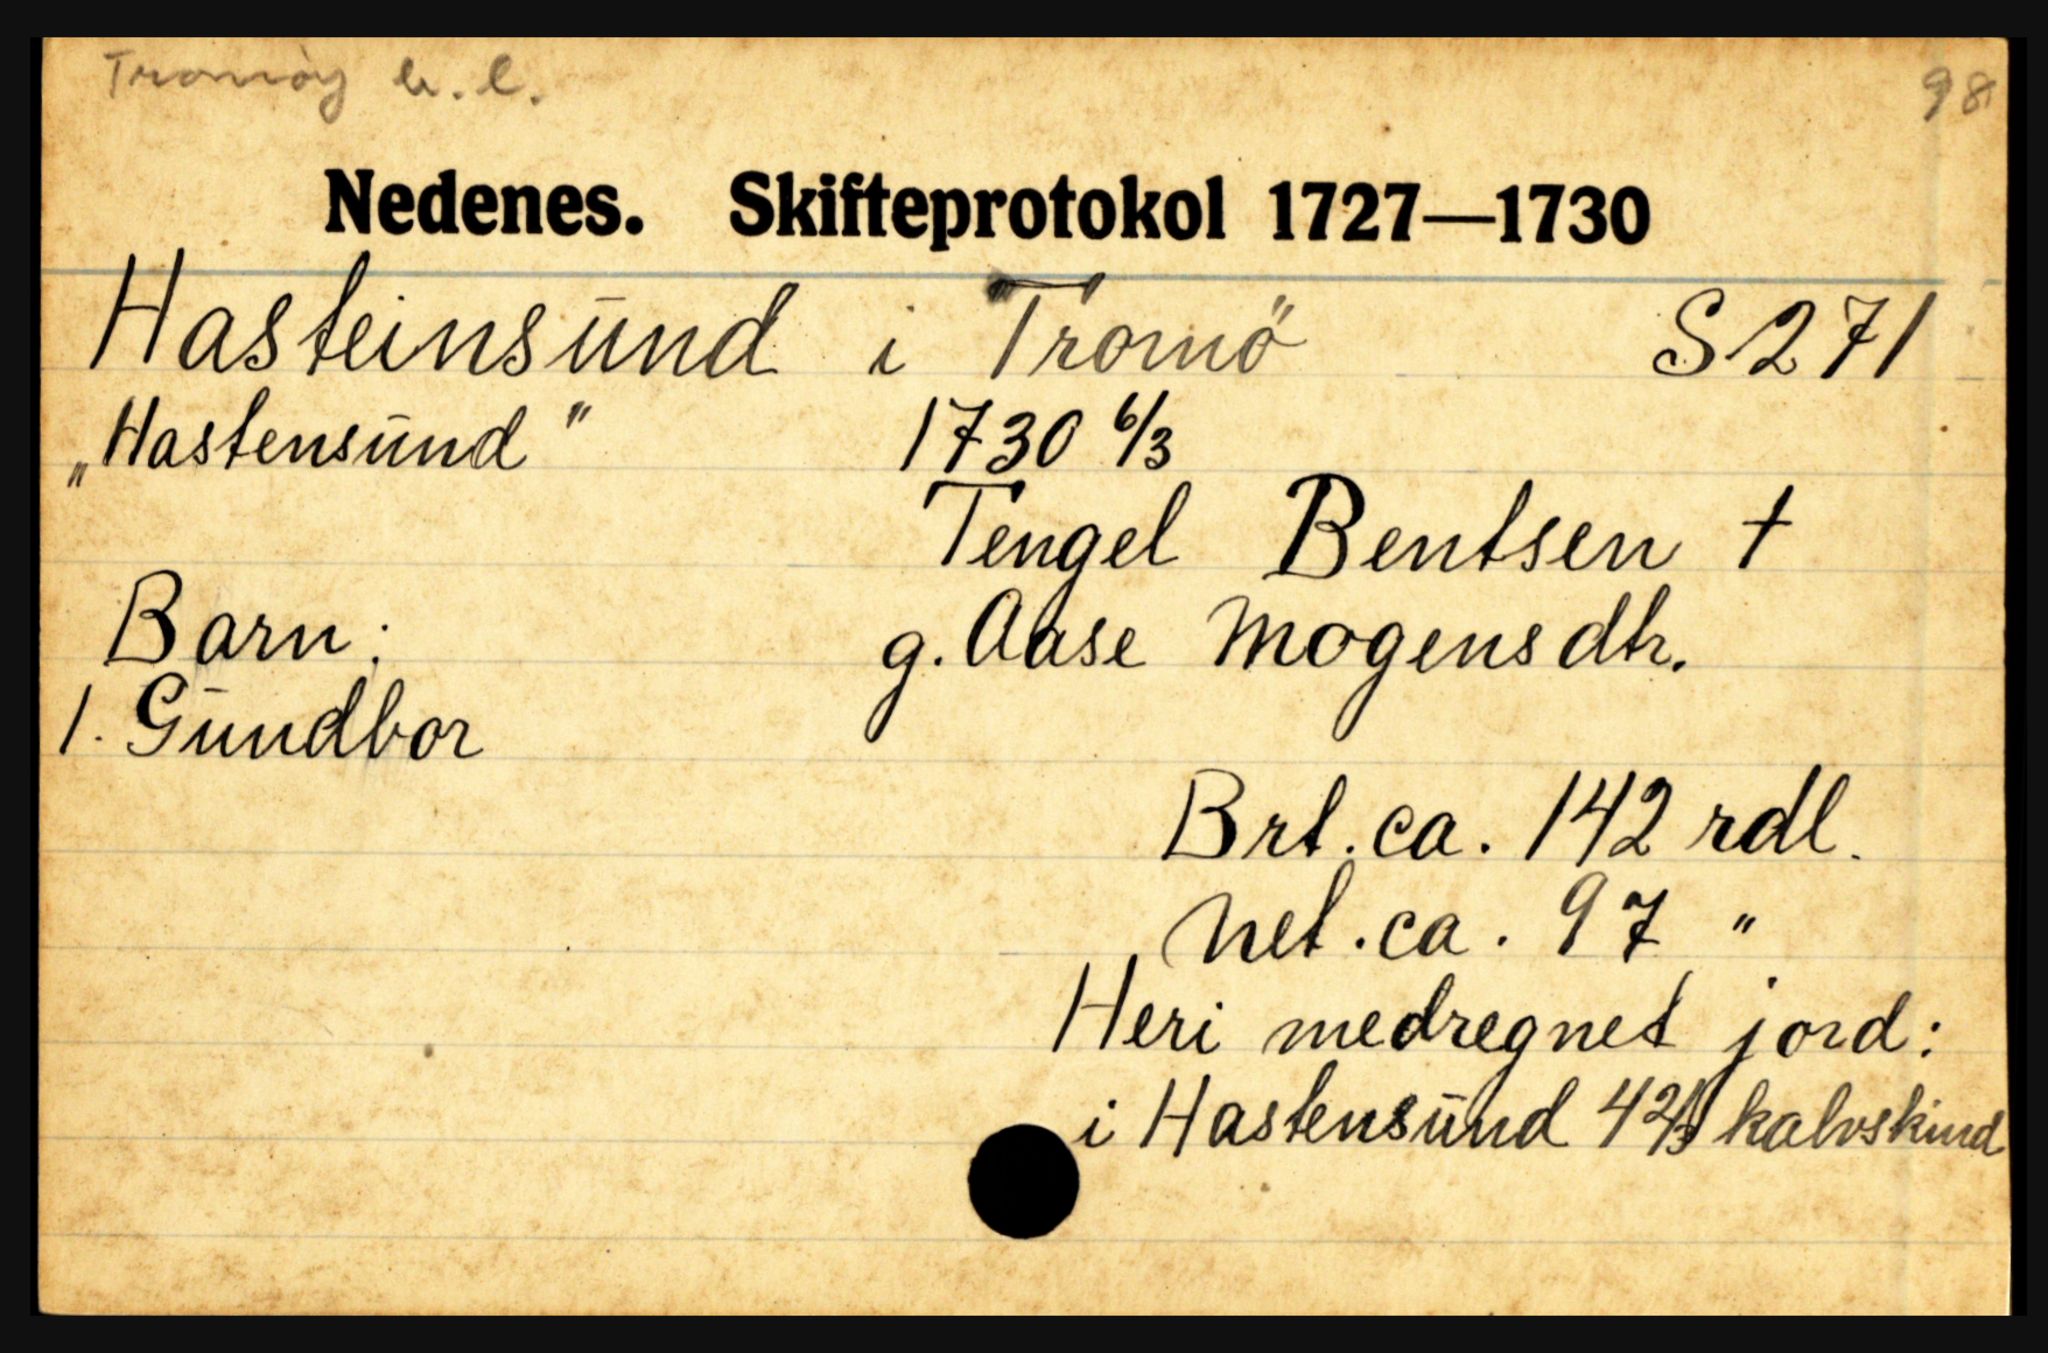 Tromøy h. l. 98
Nedenes. Skifteprotokol 1727—1730
Hasteinsund i Tromö S 271
„Hastensund" 1730 6/3
Tengel Bentsen †
Barn: g. Aase Mogensdtr.
1. Gundbor
Brt. ca. 142 rdl.
Net. ca. 97 "
Heri medregnet jord:
i Hastensund 4 2/3 kalvskind